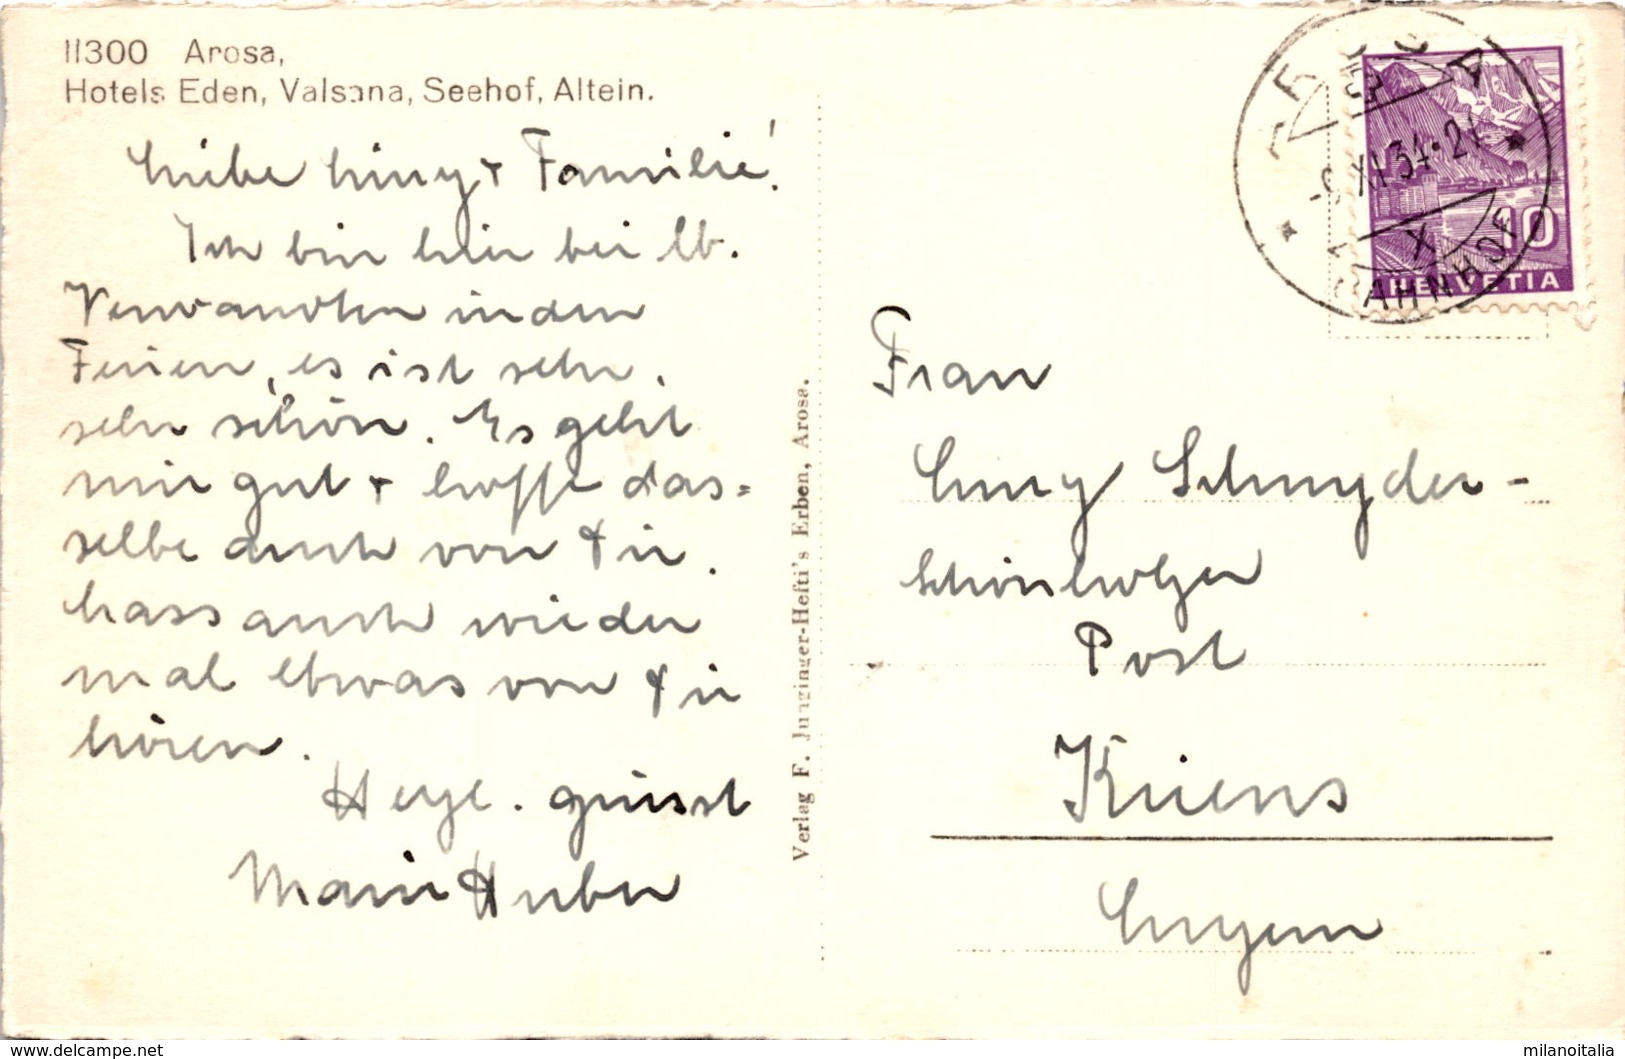 11300 Arosa,
Hotels Eden, Valsana, Seehof, Altein.
Liebe Liny + Familie!
Ich bin hier bei lb.
Verwandten in den
Ferien, es ist sehr,
sehr schön. Es geht
mir gut + hoffe das=
selbe auch von Dir.
Lass auch wieder
mal etwas von Dir
hören.
Herzl. grüsst
Marie Huber
Verlag F. Junginger-Hefti's Erben, Arosa.
AROSA
XI.34-21
BAHNHOF
10
HELVETIA
Frau
Liny Schnyder-
Schönholzer
Post
Kriens
Luzern
milanoitalia
www.delcampe.net